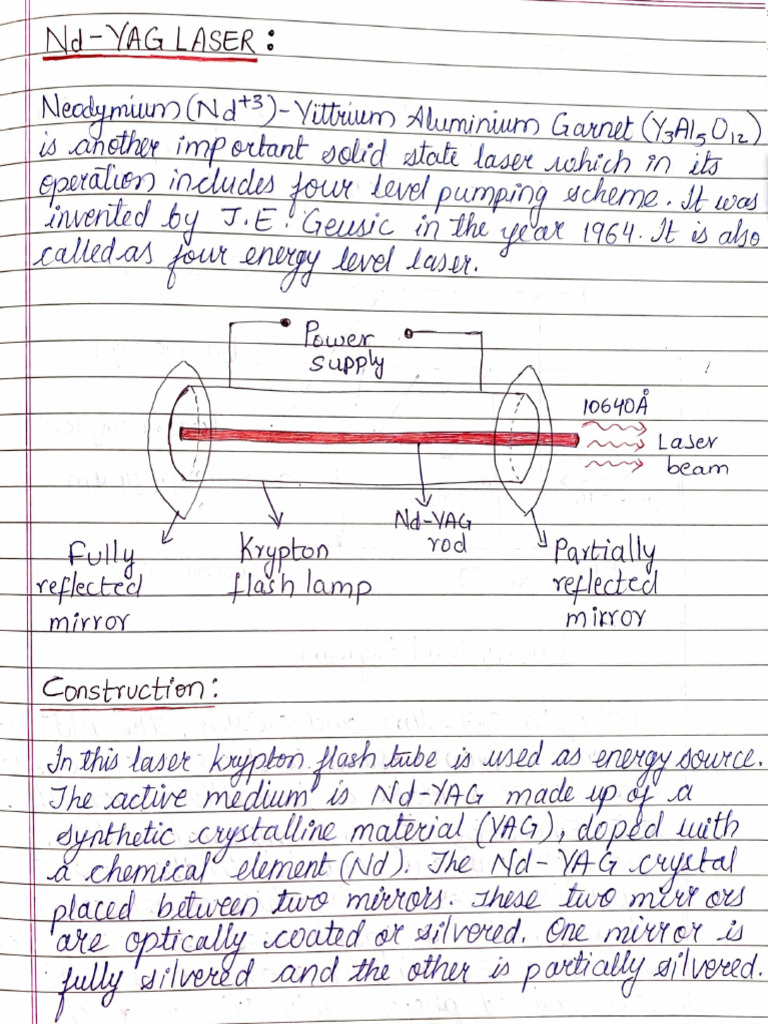 Nd-YAG LASER:
Neodymium (Nd⁺³) - Yittrium Aluminium Garnet (Y₃Al₅O₁₂)
is another important solid state laser which in its
operation includes four level pumping scheme. It was
invented by J.E. Geusic in the year 1964. It is also
called as four energy level laser.
Power
supply
10640Å
Laser
beam
Nd-YAG
rod
Fully
reflected
mirror
Krypton
flash lamp
Partially
reflected
mirror
Construction:
In this laser krypton flash tube is used as energy source.
The active medium is Nd-YAG made up of a
synthetic crystalline material (YAG), doped with
a chemical element (Nd). The Nd-YAG crystal
placed between two mirrors. These two mirrors
are optically coated or silvered. One mirror is
fully silvered and the other is partially silvered.